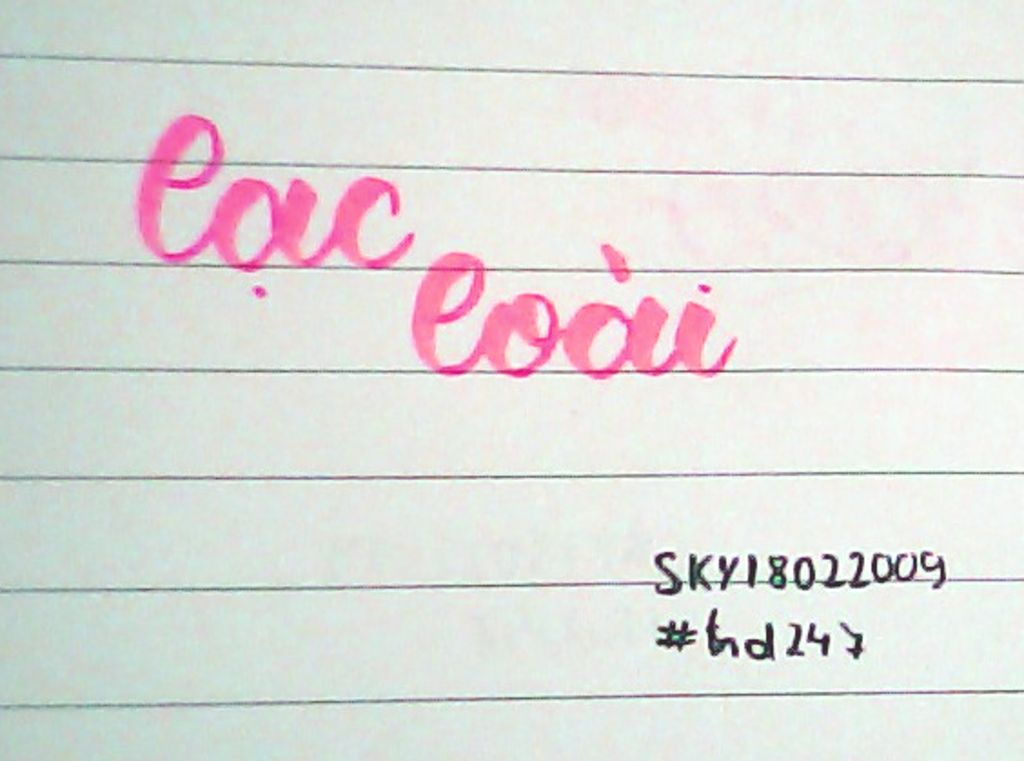 lạc
loài
SKY18022009
#hd247